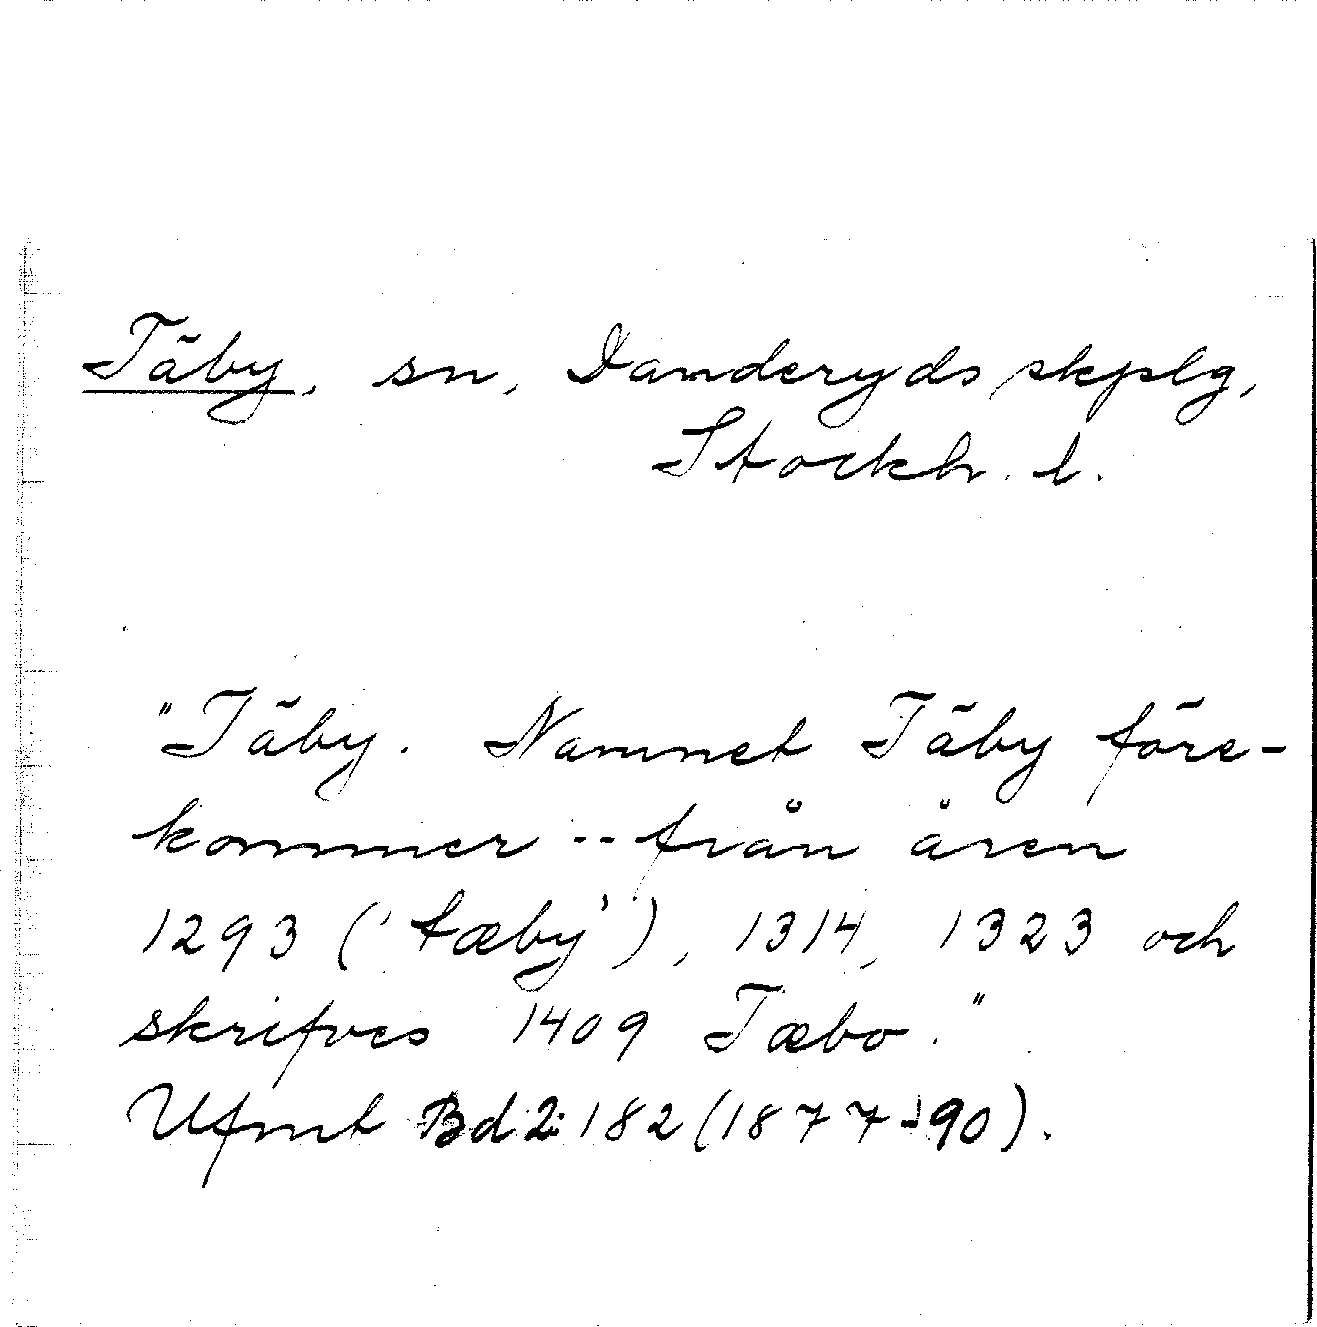 Täby, sn, Danderyds skplg,
Stockh. l.
"Täby. Namnet Täby före-
kommer -- från åren
1293 ('tæby'), 1314, 1323 och
skrifves 1409 Tæbo."
Ufmt Bd 2: 182 (1877-90).